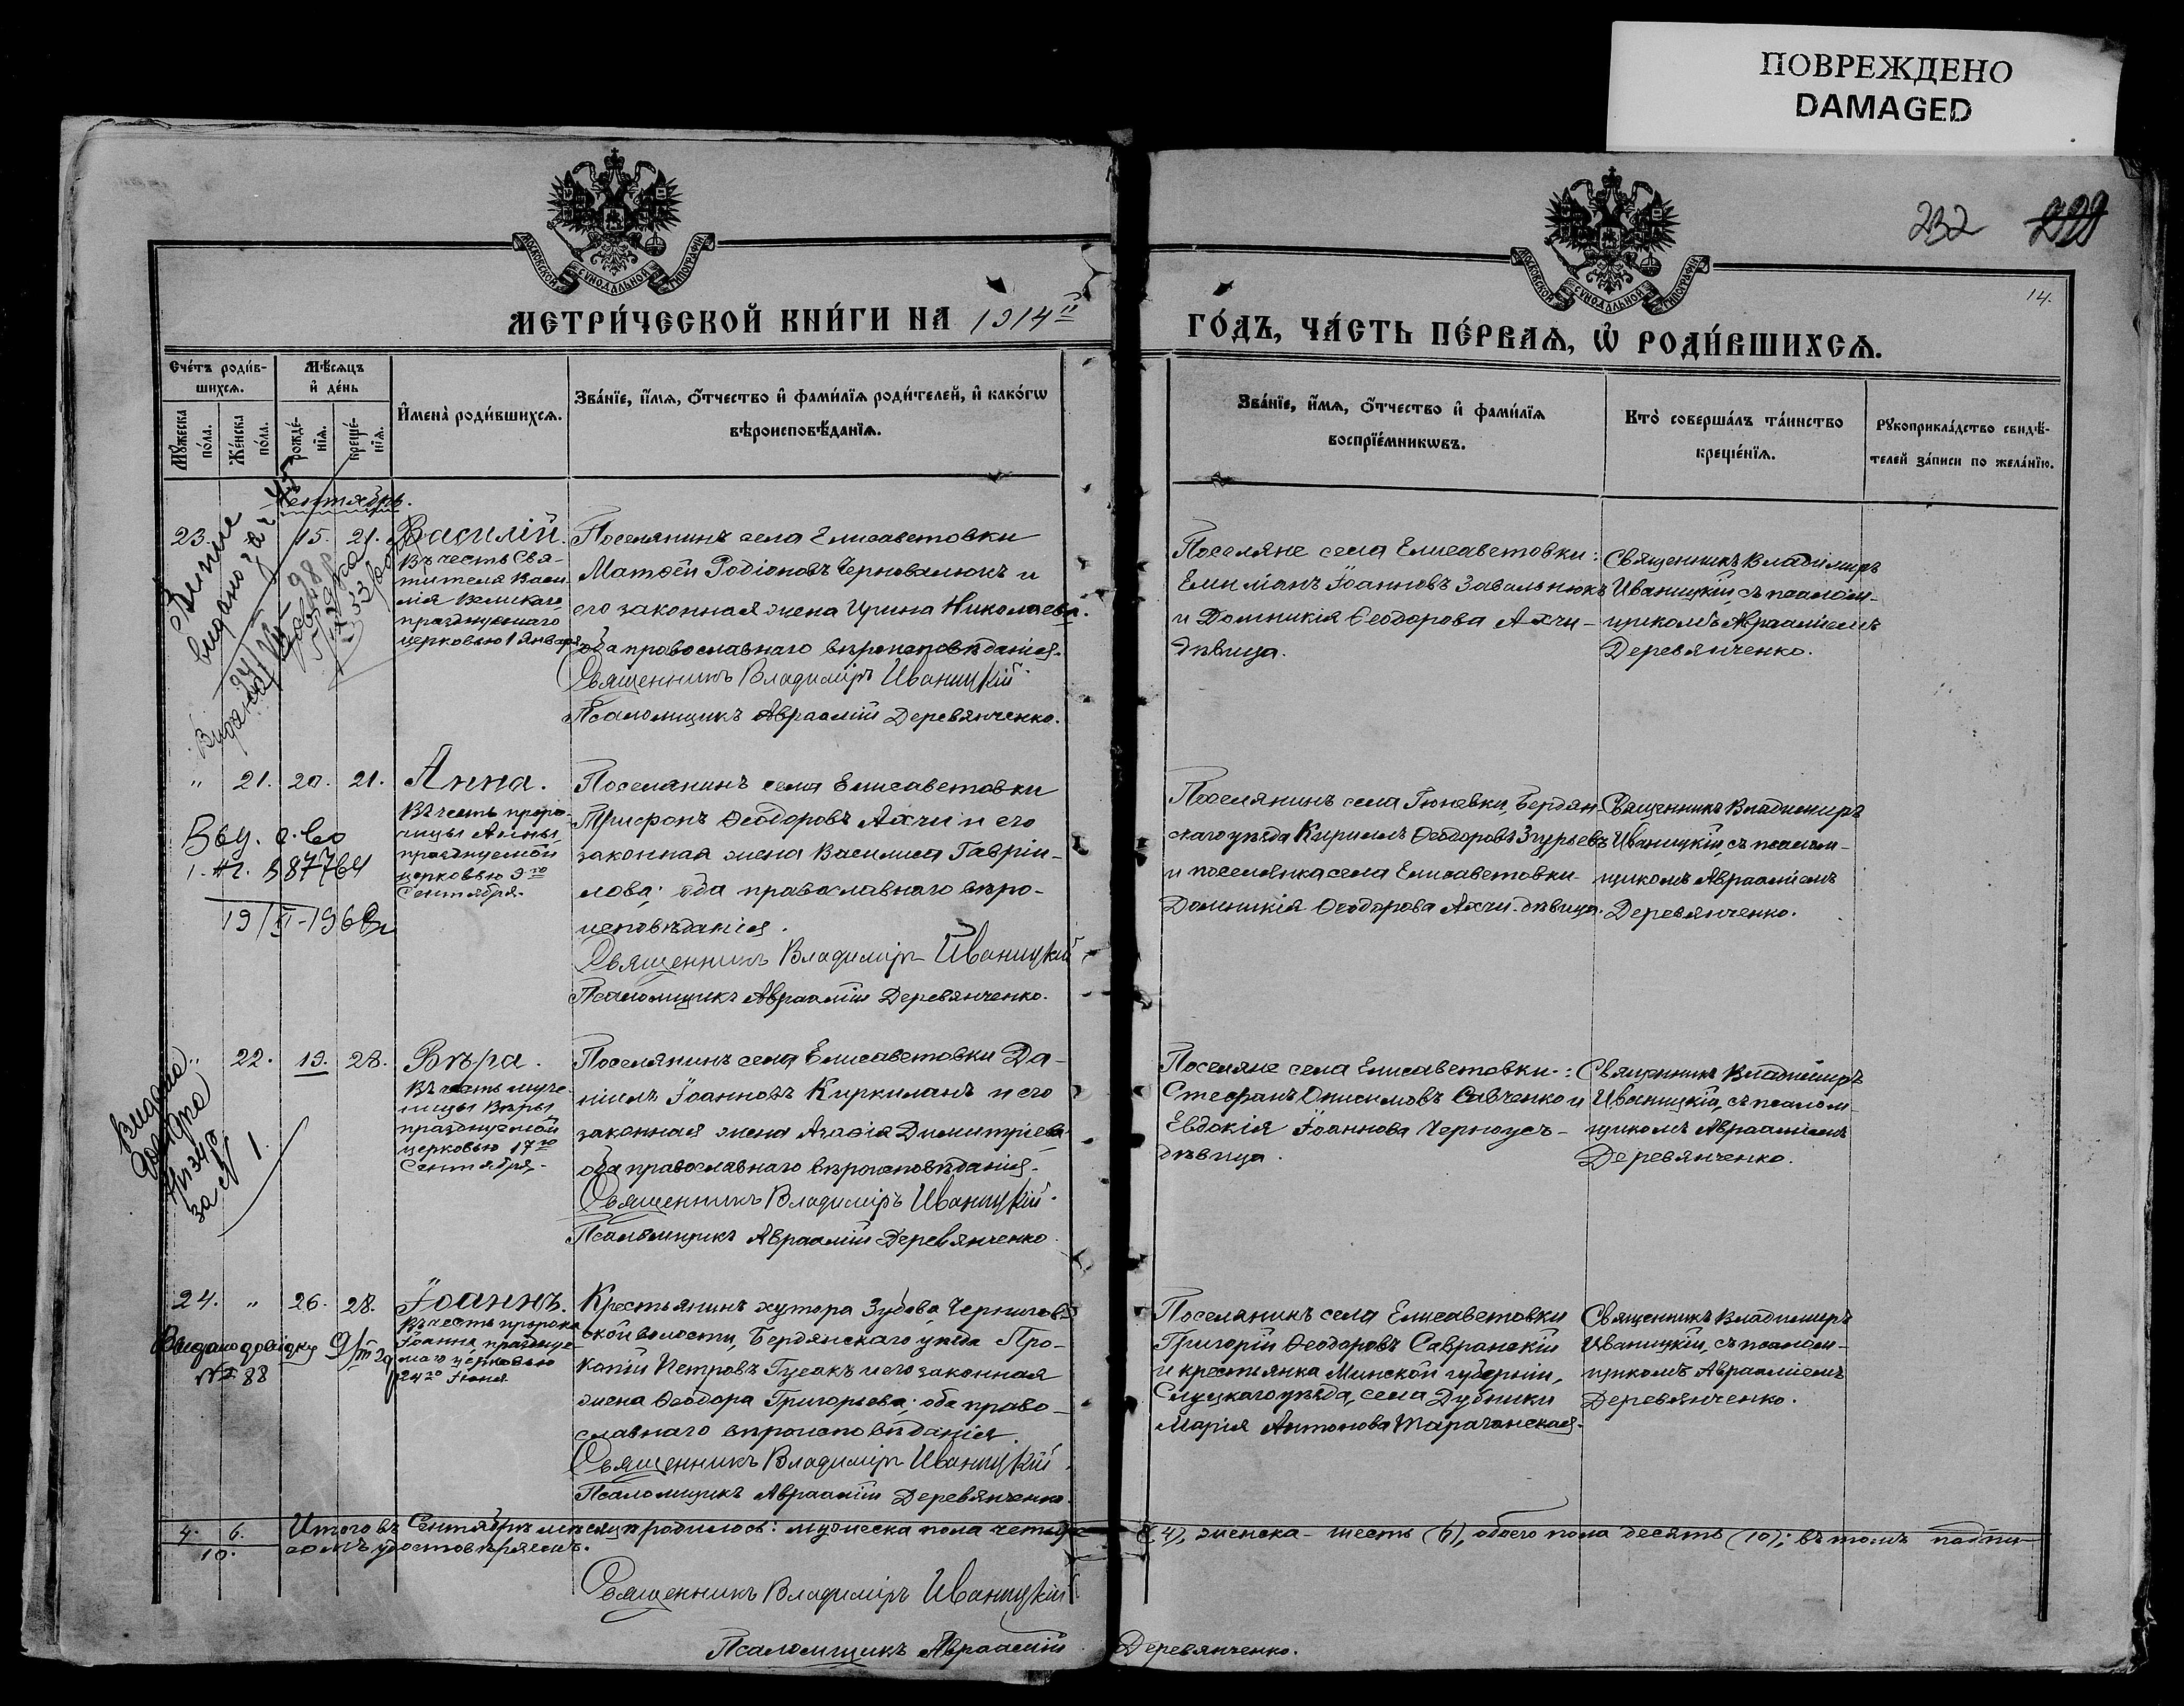 ПОВРЕЖДЕНО
DAMAGED
МОСКОВСКОЙ СѴНОДАЛЬНОЙ ТИПОГРАФІИ
МОСКОВСКОЙ СѴНОДАЛЬНОЙ ТИПОГРАФІИ
232
14.
МЕТРИ́ЧЕСКОЙ КНИ́ГИ НА 1914й
ГО́ДЪ, ЧА́СТЬ ПЕ́РВАѦ, Ѡ҆ РОДИ́ВШИХСѦ.
Сче́тъ роди́в-
шихсѧ.
Мꙋжеска по́ла.
Же́нска по́ла.
Мѣ́сѧцъ
и҆ де́нь
рожде́-
нїѧ.
креще́-
нїѧ.
И҆мена̀ роди́вшихсѧ.
Зва́нїе, и҆́мѧ, ѻ҆́тчество и҆ фами́лїѧ роди́телей, и҆ како́гѡ
вѣроисповѣ́данїѧ.
Зва́нїе, и҆́мѧ, ѻ҆́тчество и҆ фами́лїѧ
воспрїе́мникѡвъ.
Кто̀ соверша́лъ та́инство
креще́нїѧ.
Рꙋкоприкла́дство свидѣ́-
телей за́писи по жела́нїю.
Сентябрь.
23. " 15. 21. Василій.
Въ честь Свя-
тителя Васи-
лія Великаго,
празднуемаго
церковью 1 Января
Поселянинъ села Елисаветовки
Матѳей Родіоновъ Черновалюкъ и
его законная жена Ирина Николаева.
оба православнаго вѣроисповѣданія.
Священникъ Владиміръ Иваницкій
Псаломщикъ Авраамій Деревянченко.
Поселяне села Елисаветовки:
Емиліанъ Іоанновъ Завальнюкъ
и Домникія Ѳеодорова Ахчи-
дѣвица.
Священникъ Владиміръ
Иваницкій, съ псалом-
щикомъ Авраамiемъ
Деревянченко.
" 21. 20. 21. Анна.
Въ честь проро-
чицы Анны,
празднуемой
церковью 9го
Сентября.
19/VI-196
Поселянинъ села Елисаветовки
Трифонъ Ѳеодоровъ Ахчи и его
законная жена Василиса Гаврiи-
лова; оба православнаго вѣро-
исповѣданія.
Священникъ Владиміръ Иваницкій
Псаломщикъ Авраамій Деревянченко.
Поселянинъ села Гюневки, Бердян-
скаго уѣзда Кириллъ Ѳеодоровъ Згурьевъ
и поселянка села Елисаветовки
Домникія Ѳеодорова Ахчи-дѣвица.
Священникъ Владиміръ
Иваницкій, съ псалом-
щикомъ Авраамiемъ
Деревянченко.
" 22. 19. 28. Вѣра.
Въ честь муче-
ницы Вѣры,
празднуемой
церковью 17го
Сентября.
Поселянинъ села Елисаветовки Да-
ніилъ Іоанновъ Киркиланъ и его
законная жена Агаѳія Димитріева
оба православнаго вѣроисповѣданія.
Священникъ Владиміръ Иваницкій.
Псаломщикъ Авраамій Деревянченко
Поселяне села Елисаветовки:
Стефанъ Онисимовъ Савченко и
Евдокія Іоаннова Черноусъ-
дѣвица.
Священникъ Владиміръ
Иваницкій, съ псалом-
щикомъ Авраамiемъ
Деревянченко.
24. " 26. 28. Іоаннъ.
Въ честь пророка
Іоанна, празднуе-
маго церковью
24го Іюня
Видано довідку 9/III 29
№ 88
Крестьянинъ хутора Зубова, Чернигов-
ской волости, Бердянскаго уѣзда Про-
капій Петровъ Гусакъ и его законная
жена Ѳеодора Григорьева; оба право-
славнаго вѣроисповѣданія.
Священникъ Владиміръ Иваницкій.
Псаломщикъ Авраамій Деревянченко.
Поселянинъ села Елисаветовки
Григорій Ѳеодоровъ Савранскій
и крестьянка Минской губерніи,
Слуцкаго уѣзда, села Дубники
Марія Антонова Тарачанская.
Священникъ Владиміръ
Иваницкій, съ псалом-
щикомъ Авраамiемъ
Деревянченко.
4. 6.
10.
Итого въ Сентябрѣ мѣсяцѣ родилось: мужеска пола четыре (4), женска - шесть (6), обоего пола десять (10); въ томъ подпи-
сомъ удостовѣряемъ.
Священникъ Владиміръ Иваницкій
Псаломщикъ Авраамій Деревянченко.